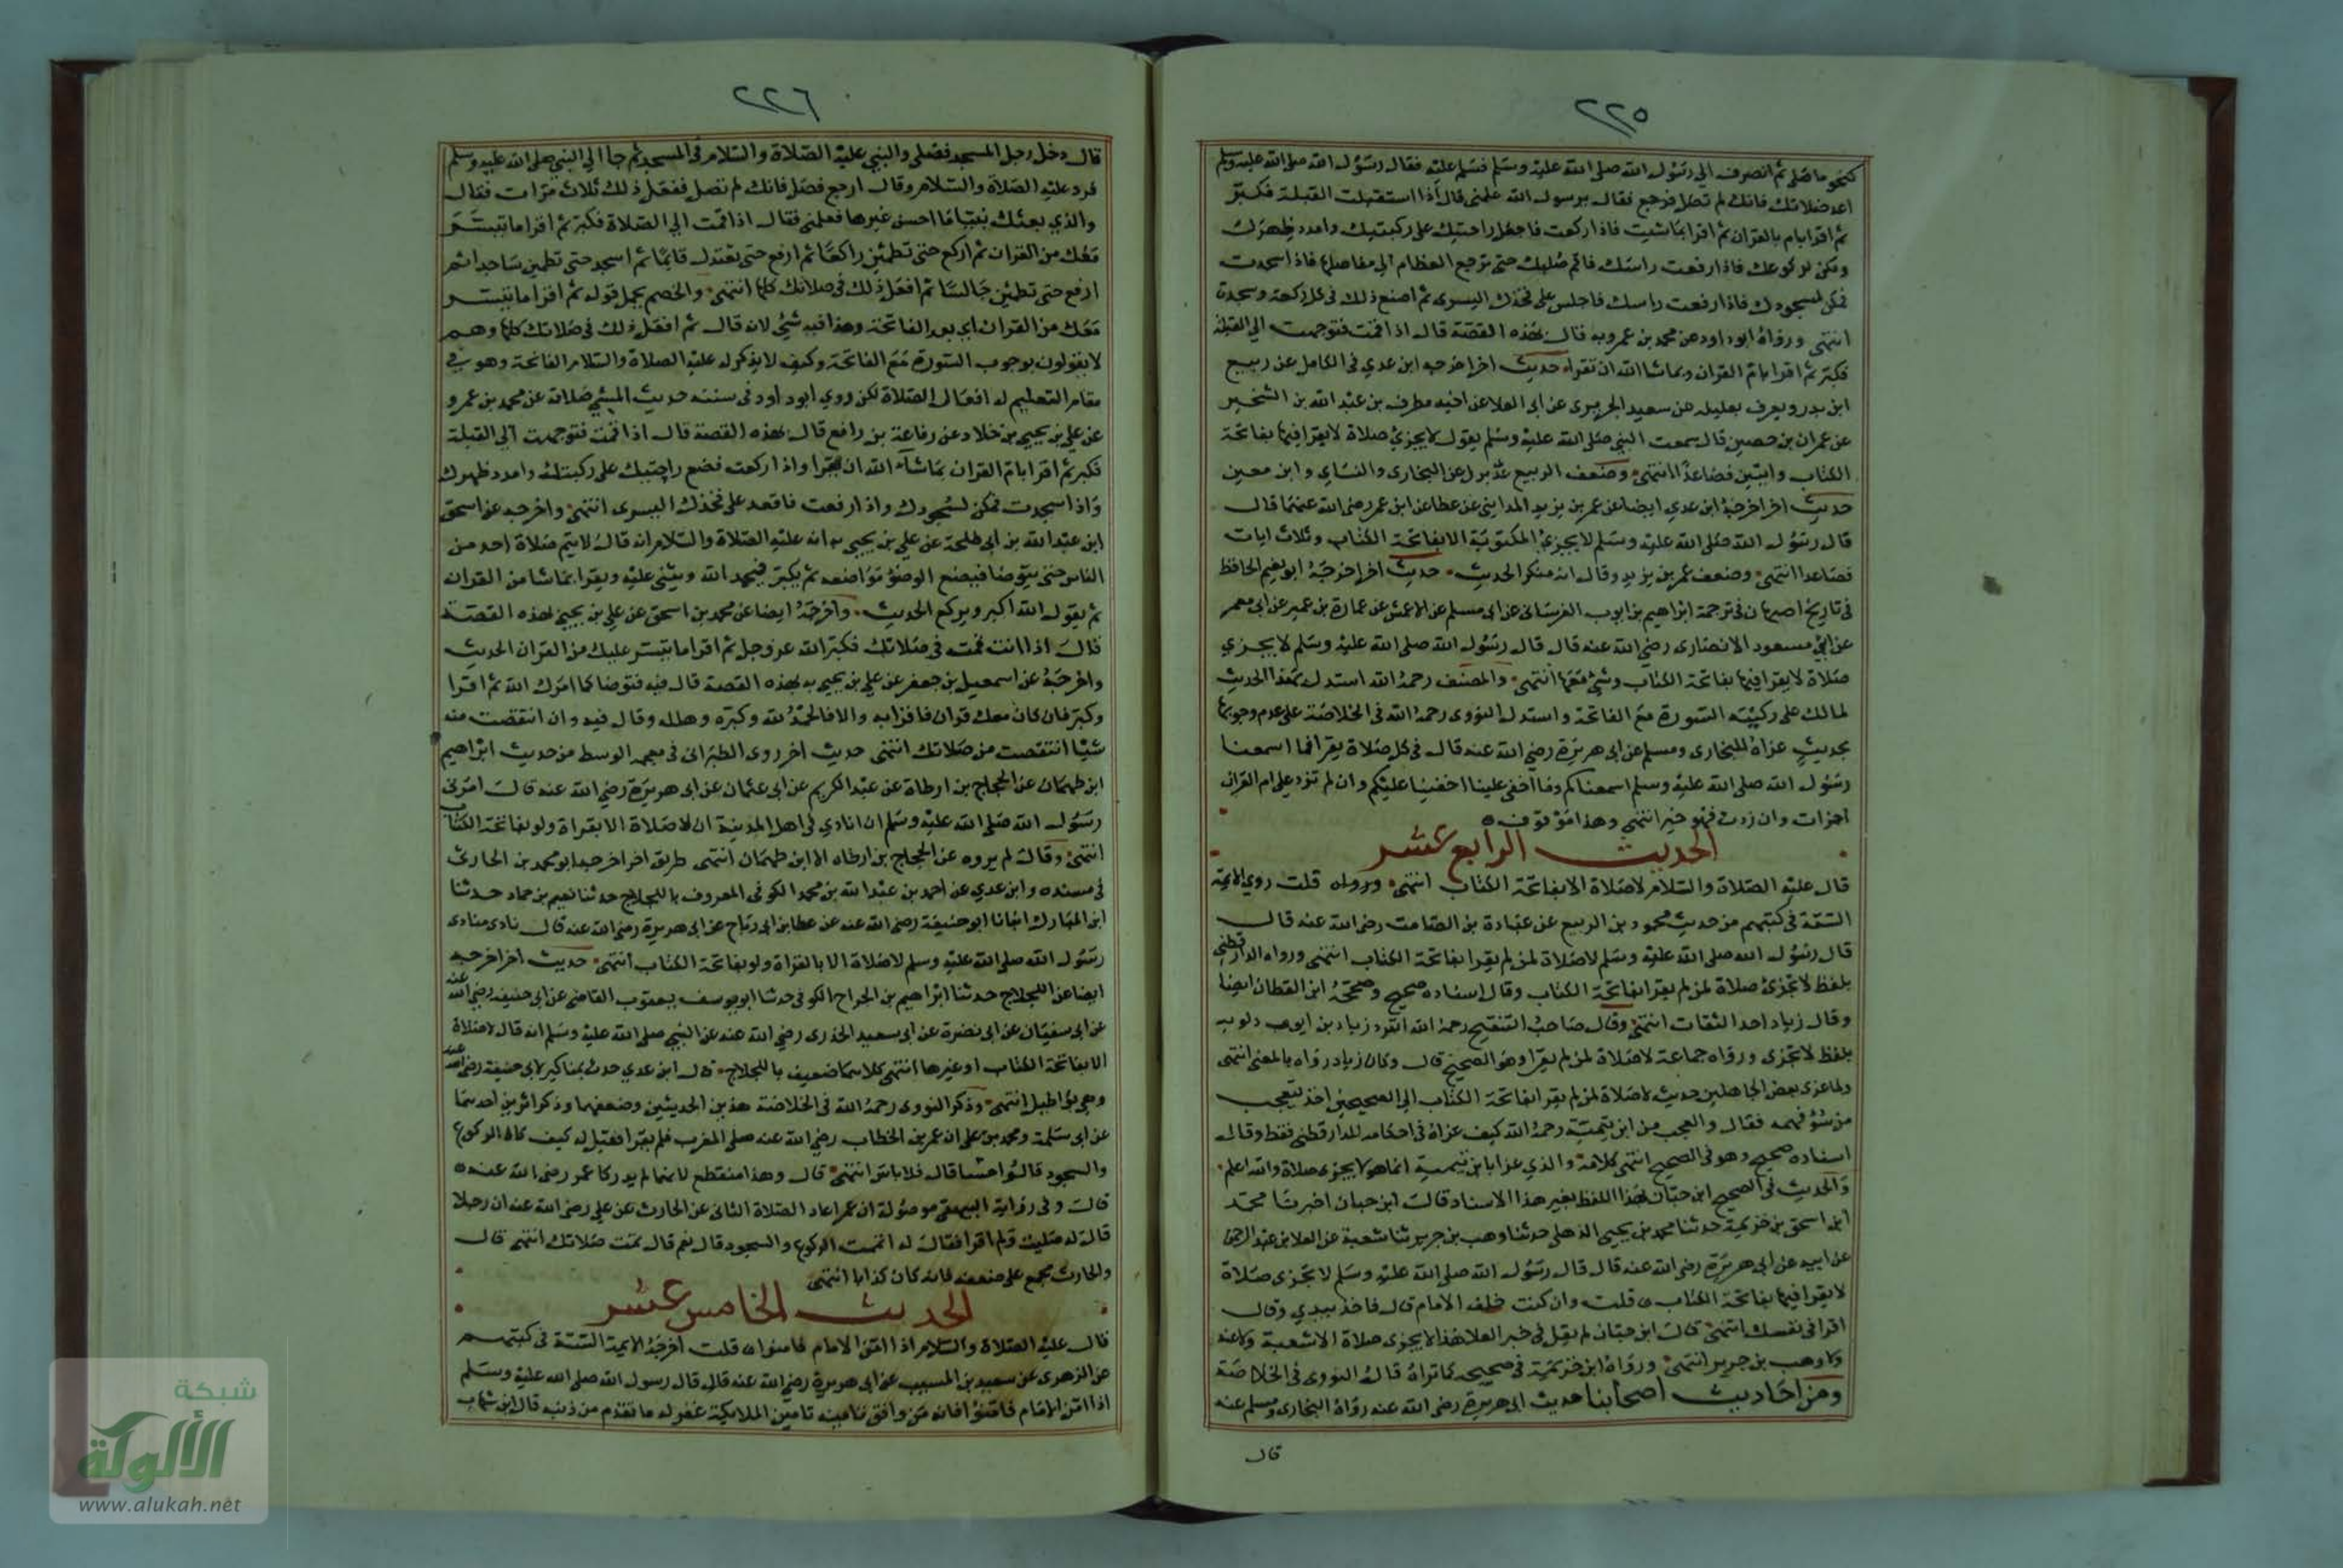 ٢٢٥
كنحو ما صلى ثم انصرف الي رسول الله صلى الله عليه وسلم فسلم عليه فقال رسول الله صلى الله عليه وسلم
اعد صلاتك فانك لم تصل فرجع فقال يرسول الله علمني قال اذا استقبلت القبلة فكبر
ثم اقرا بام بالقران ثم اقرا بما شيت فاذا ركعت فاجعل راحتيك على ركبتيك وامدد ظهرك
ومكن لركوعك فاذا رفعت راسك فاقم صلبك حتى ترجع العظام الي مفاصلها فاذا سجدت
فمكن لسجودك فاذا رفعت راسك فاجلس على فخذك اليسرى ثم اصنع ذلك في كل ركعة وسجدة
انتهى ورواه ابوداود عن محمد بن عمرو به قال بهذه القصة قال اذا قمت فتوجهت الي القبلة
فكبر ثم اقرا بام القران وبما شا الله ان تقرا حديث اخر اخرجه ابن عدي في الكامل عن ربيع
ابن بدر ويعرف بعليله عن سعيد الجريرى عن ابى العلا عن اخيه مطرف بن عبد الله بن الشخير
عن عمران بن حصين قال سمعت النبي صلى الله عليه وسلم يقول لا يجزئ صلاة لا يقرا فيها بفاتحة
الكتاب وايتين فصاعدا انتهى وضعف الربيع بن بدر عن البخارى والنساي وابن معين
حديث اخر اخرجه ابن عدي ايضا عن عمر بن يزيد المدايني عن عطا عن ابن عمر رضى الله عنهما قال
قال رسول الله صلى الله عليه وسلم لا يجزئ المكتوبة الا بفاتحة الكتاب وثلاث ايات
فصاعدا انتهى وضعف عمر بن يزيد وقال انه منكر الحديث حديث اخر اخرجه ابو نعيم الحافظ
في تاريخ اصبهان في ترجمة ابراهيم بن ايوب الفرسانى عن ابى مسلم عن الاعمش عن عمارة بن عمير عن ابى معمر
عن ابي مسعود الانصارى رضى الله عنه قال قال رسول الله صلى الله عليه وسلم لا يجزي
صلاة لا يقرا فيها بفاتحة الكتاب وشئ معها انتهى والمصنف رحمه الله استدل بهذا الحديث
لمالك على ركنية السورة مع الفاتحة واستدل النووى رحمه الله في الخلاصة على عدم وجوبها
بحديث عزاه للبخارى ومسلم عن ابى هريرة رضى الله عنه قال في كل صلاة يقرا فما اسمعنا
رسول الله صلى الله عليه وسلم اسمعناكم وما اخفى علينا اخفينا عليكم وان لم تزد على ام القران
اجزات وان زدت فهو خير انتهى وهذا موقوف
الحديث الرابع عشر
قال عليه الصلاة والسلام لا صلاة الا بفاتحة الكتاب انتهى قلت روي الايمة
الستة في كتبهم من حديث محمود بن الربيع عن عبادة بن الصامت رضى الله عنه قال
قال رسول الله صلى الله عليه وسلم لا صلاة لمن لم يقرا بفاتحة الكتاب انتهى ورواه الدارقطني
بلفظ لا تجزى صلاة لمن لم يقرا بفاتحة الكتاب وقال اسناده صحيح وصححه ابن القطان ايضا
وقال زياد احد الثقات انتهى وقال صاحب التنقيح رحمه الله انفرد زياد بن ايوب دلويه
بلفظ لا تجزى ورواه جماعة لا صلاة لمن لم يقرا وهو الصحيح قال وكان زياد رواه بالمعنى انتهى
ولما عزى بعض الجاهلين حديث لا صلاة لمن لم يقرا بفاتحة الكتاب الي الصحيحين اخذ يتعجب
من سوء فهمه فقال والعجب من ابن تيمية رحمه الله كيف عزاه في احكامه للدارقطني فقط وقال
اسناده صحيح وهو في الصحيح انتهى كلامه والذي عزاه ابن تيمية انما هو لا يجزى صلاة والله اعلم
والحديث في الصحيح ابن حبان بهذا اللفظ بغير هذا الاسناد قال ابن حبان اخبرنا محمد
ابن اسحق بن خزيمة حدثنا محمد بن يحيى الذهلى حدثنا وهب بن جرير ثنا شعبة عن العلا بن عبد الرحمن
عن ابيه عن ابى هريرة رضى الله عنه قال قال رسول الله صلى الله عليه وسلم لا تجزى صلاة
لا يقرا فيها بفاتحة الكتاب قلت وان كنت خلف الامام قال فاخذ بيدي وقال
اقرا في نفسك انتهى قال ابن حبان لم يقل في خبر العلا هذا لا يجزى صلاة الا شعبة ولا عنه
الا وهب بن جرير انتهى ورواه ابن خزيمة في صحيحه كما تراه قال النووى في الخلاصة
ومن احاديث اصحابنا حديث ابى هريرة رضى الله عنه رواه البخارى ومسلم عنه
قال
٢٢٦
قال دخل رجل المسجد فصلى والنبي عليه الصلاة والسلام في المسجد ثم جا الي النبي صلى الله عليه وسلم
فرد عليه الصلاة والسلام وقال ارجع فصل فانك لم تصل ففعل ذلك ثلاث مرات فقال
والذي بعثك نبيا ما احسن غيرها فعلمني فقال اذا قمت الي الصلاة فكبر ثم اقرا ما تيسر
معك من القران ثم اركع حتى تطمئن راكعا ثم ارفع حتى تعتدل قائما ثم اسجد حتى تطمين ساجدا ثم
ارفع حتى تطمئن جالسا ثم افعل ذلك في صلاتك كلها انتهى والخصم يحمل قوله ثم اقرا ما تيسر
معك من القران اي بعد الفاتحة وهذا فيه شئ لانه قال ثم افعل ذلك في صلاتك كلها وهم
لا يقولون بوجوب السورة مع الفاتحة وكيف لا يذكر له عليه الصلاة والسلام الفاتحة وهو في
مقام التعليم له افعال الصلاة لكن روي ابوداود في سننه حديث المسئ صلاته عن محمد بن عمرو
عن علي بن يحيي بن خلاد عن رفاعة بن رافع قال بهذه القصة قال اذا قمت فتوجهت الي القبلة
فكبر ثم اقرا بام القران بما شاء الله ان تقرا واذا ركعت فضع راحتيك على ركبتيك وامدد ظهرك
واذا سجدت فمكن لسجودك واذا رفعت فاقعد على فخذك اليسرى انتهى واخرجه عن اسحق
ابن عبد الله بن ابى طلحة عن علي بن يحيي به انه عليه الصلاة والسلام انه قال لا يتم صلاة احد من
الناس حتى يتوضا فيضع الوضوء مواضعه ثم يكبر فيحمد الله ويثنى عليه ويقرا بما شا من القران
ثم يقول الله اكبر ويركع الحديث واخرجه ايضا عن محمد بن اسحق عن علي بن يحيي بهذه القصة
قال اذا انت قمت في صلاتك فكبر الله عز وجل ثم اقرا ما تيسر عليك من القران الحديث
واخرجه عن اسمعيل بن جعفر عن علي بن يحيي به بهذه القصة قال فيه فتوضا كما امرك الله ثم اقرا
وكبر فان كان معك قران فاقرا به والا فالحمد لله وكبره وهلله وقال فيه وان انتقصت منه
شيئا انتقصت من صلاتك انتهى حديث اخر روى الطبرانى في معجمه الوسط من حديث ابراهيم
ابن طهمان عن الحجاج بن ارطاة عن عبد الكريم عن ابى عثمان عن ابى هريرة رضى الله عنه قال امرنى
رسول الله صلى الله عليه وسلم ان انادي في اهل المدينة ان لا صلاة الا بقراة ولو بفاتحة الكتاب
انتهى وقال لم يروه عن الحجاج بن ارطاه الا ابن طهمان انتهى طريق اخر اخرجه ابو محمد بن الحارثى
في مسنده وابن عدي عن احمد بن عبد الله بن محمد الكوفى المعروف باللجلاج حدثنا نعيم بن حماد حدثنا
ابن المبارك انبانا ابو حنيفة رضى الله عنه عن عطا بن ابى رباح عن ابى هريرة رضى الله عنه قال نادى منادى
رسول الله صلى الله عليه وسلم لا صلاة الا بالقراة ولو بفاتحة الكتاب انتهى حديث اخر اخرجه
ايضا عن اللجلاج حدثنا ابراهيم بن الجراح الكوفى حدثنا ابو يوسف يعقوب القاضى عن ابى حنيفة رضى الله عنه
عن ابى سفيان عن ابى نضرة عن ابى سعيد الخدرى رضى الله عنه عن النبي صلى الله عليه وسلم انه قال لا صلاة
الا بفاتحة الكتاب او غيرها انتهى كلاهما ضعيف باللجلاج قال ابن عدي حدث بمناكير لابى حنيفة رضى الله عنه
وهى بواطيل انتهى وذكر النووى رحمه الله في الخلاصة هذين الحديثين وضعفهما وذكر اثرين احدهما
عن ابى سلمة ومحمد بن على ان عمر بن الخطاب رضى الله عنه صلى المغرب فلم يقرا فقيل له كيف كان الركوع
والسجود قالوا حسنا قال فلا باس انتهى قال وهذا منقطع لانهما لم يدركا عمر رضى الله عنه
قال وفى رواية البيهقى موصولة ان عمر اعاد الصلاة الثانى عن الحارث عن علي رضى الله عنه ان رجلا
قال له صليت ولم اقرا فقال له اتممت الركوع والسجود قال نعم قال تمت صلاتك انتهى قال
والحارث مجمع على ضعفه فانه كان كذابا انتهى
الحديث الخامس عشر
قال عليه الصلاة والسلام اذا امن الامام فامنوا قلت اخرجه الايمة الستة في كتبهم
عن الزهرى عن سعيد بن المسيب عن ابى هريرة رضى الله عنه قال قال رسول الله صلى الله عليه وسلم
اذا امن الامام فامنوا فانه من وافق تامينه تامين الملايكة غفر له ما تقدم من ذنبه قال ابن شهاب
شبكة
الألوكة
www.alukah.net